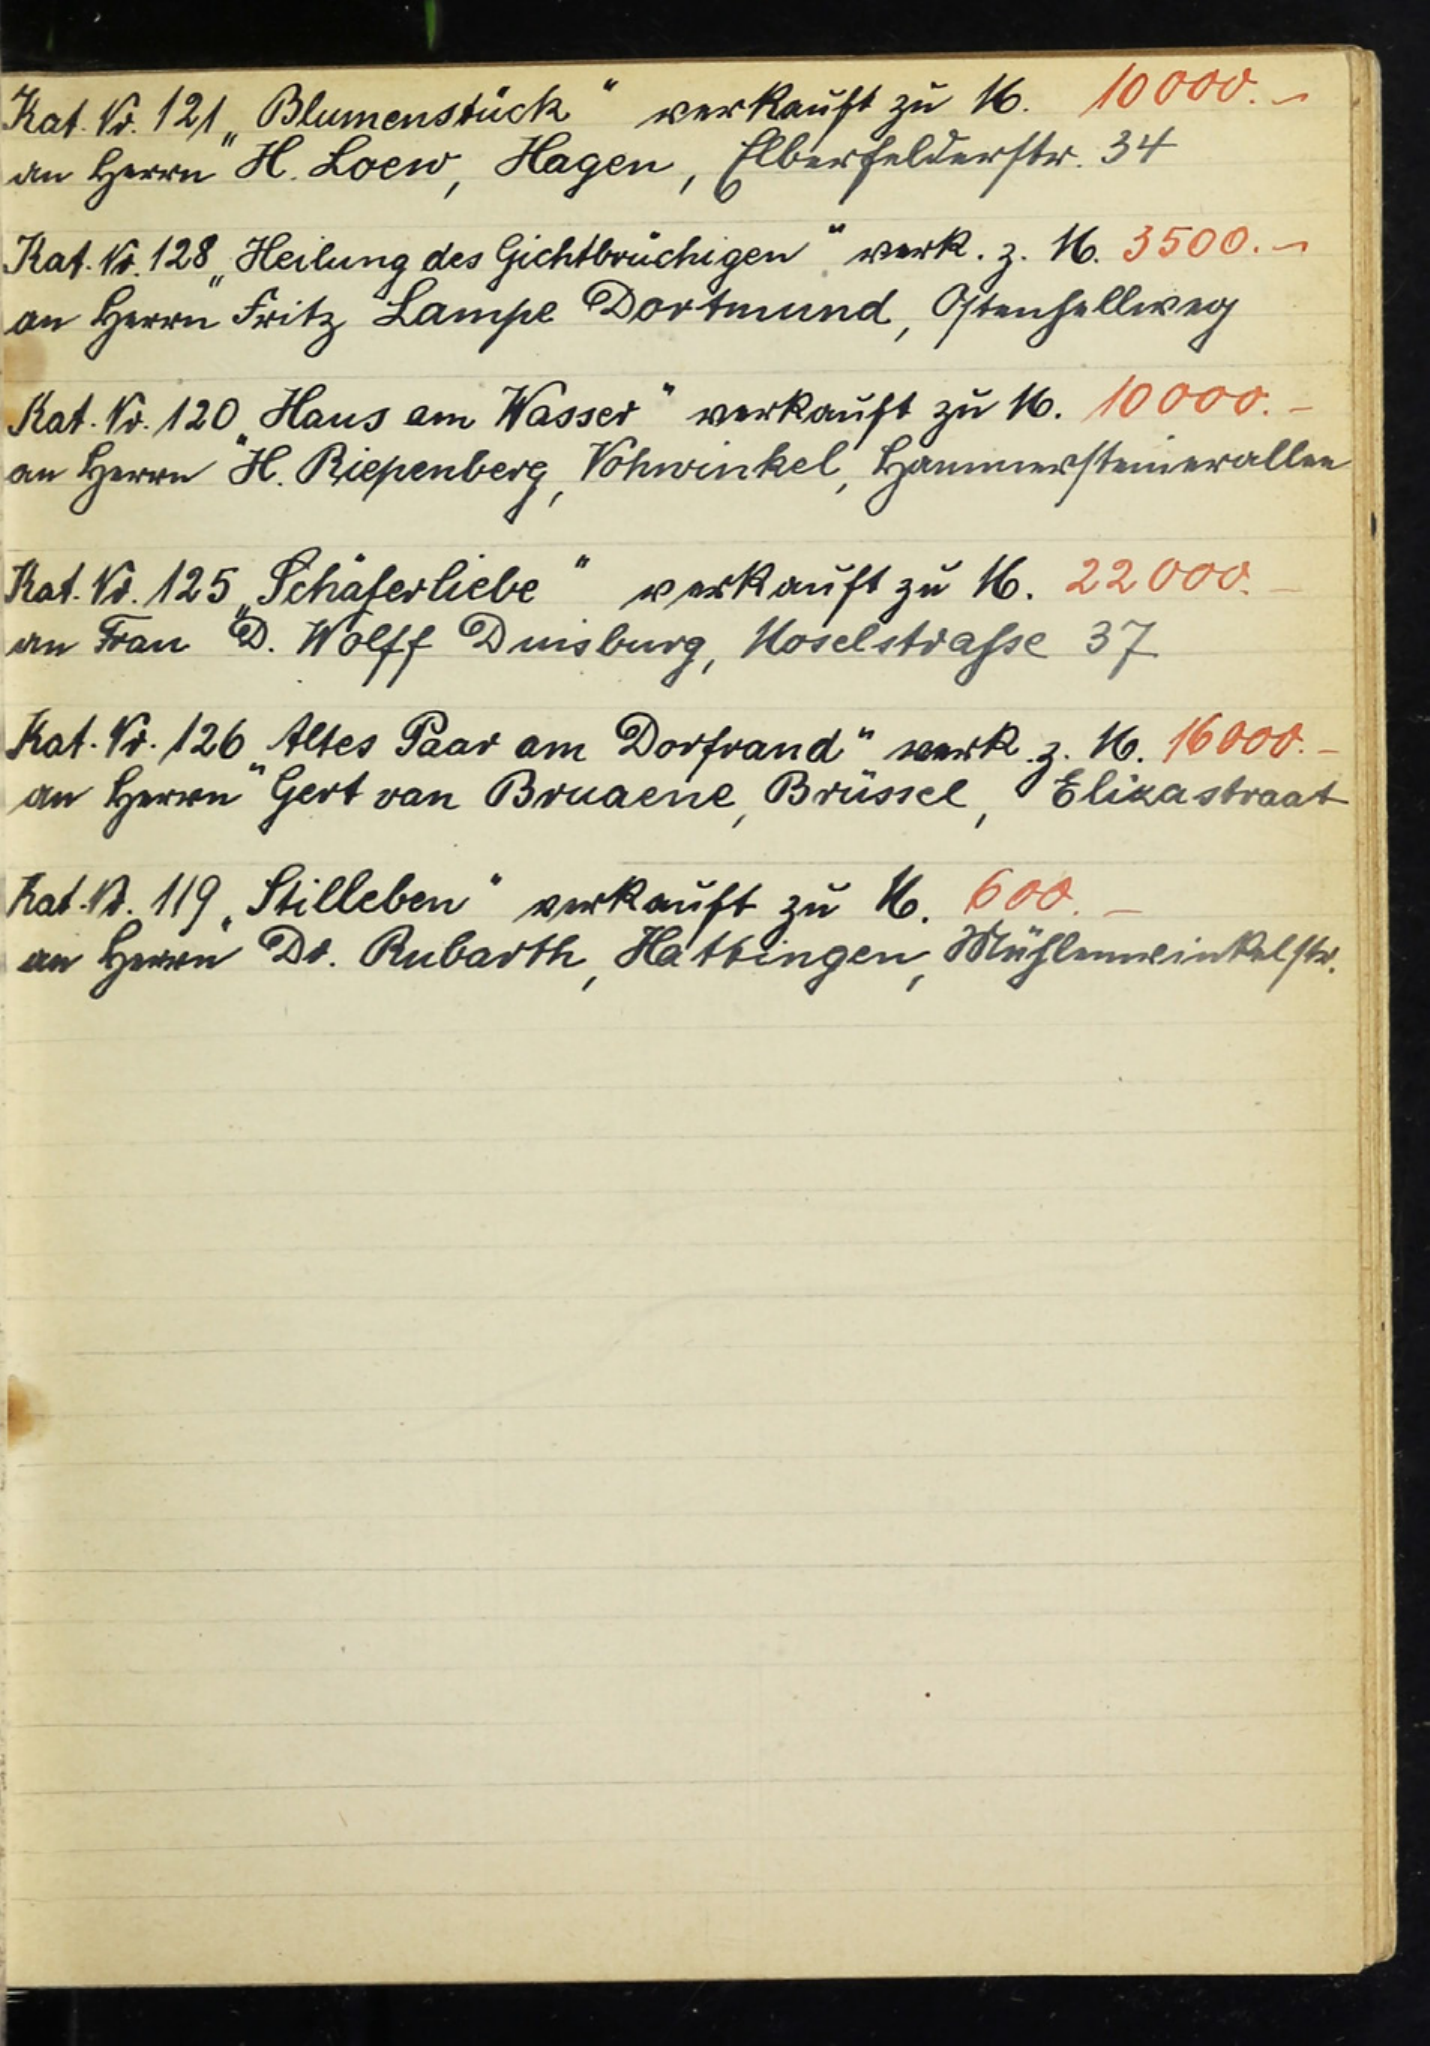 Kat. Nr. 121 „Blumenstück“ verkauft zu M. 10000.—
an Herrn H. Loew, Hagen, Elberfelderstr. 34
Kat. Nr. 128 „Heilung des Gichtbrüchigen“ verk. z. M. 3500.—
an Herrn Fritz Lampe Dortmund, Ostenhellweg
Kat. Nr. 120 „Haus am Wasser“ verkauft zu M. 10000.—
an Herrn H. Riepenberg, Vohwinkel, Hammersteinerallee
Kat. Nr. 125 „Schäferliebe“ verkauft zu M. 22000.—
an Frau D. Wolff Duisburg, Moselstrasse 37
Kat. Nr. 126 „Altes Paar am Dorfrand“ verk. z. M. 16000.—
an Herrn Gert van Bruaene, Brüssel, Elizastraat
Kat. Nr. 119 „Stilleben“ verkauft zu M. 600.—
an Herrn Dr. Rubarth, Hattingen, Mühlenwinkelstr.